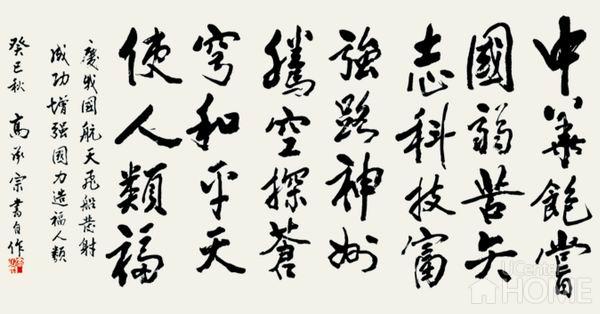 中華飽嘗
國弱苦矢
志科技富
強路神州
騰空探蒼
穹和平天
使人類福
慶我国航天飛船發射
成功增强国力造福人類
癸巳秋 高承宗書自作
UCenter
HOME